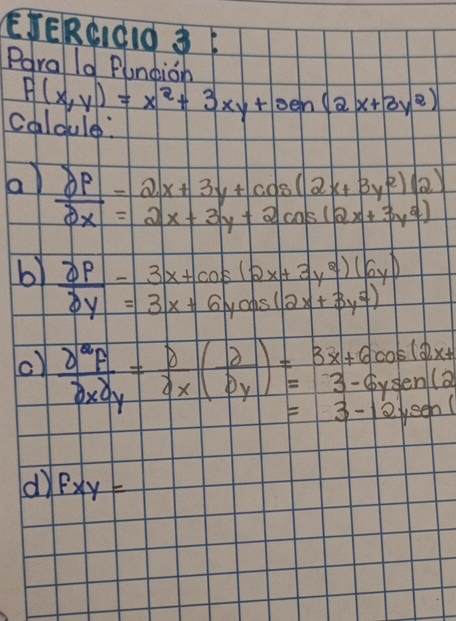 EJERCICIO 3:
Para la función
f(x,y) = x² + 3xy + sen(2x+3y²)
Calcule:
a) ∂f/∂x = 2x + 3y + cos(2x+3y²)(2)
= 2x + 3y + 2cos(2x+3y²)
b) ∂f/∂y = 3x + cos(2x+3y²)(6y)
= 3x + 6y cos(2x+3y²)
c) ∂²f/∂x∂y = ∂/∂x (∂/∂y) = 3x + 6 cos(2x+
= 3 - 6y sen(2
= 3 - 12y sen(
d) fxy =